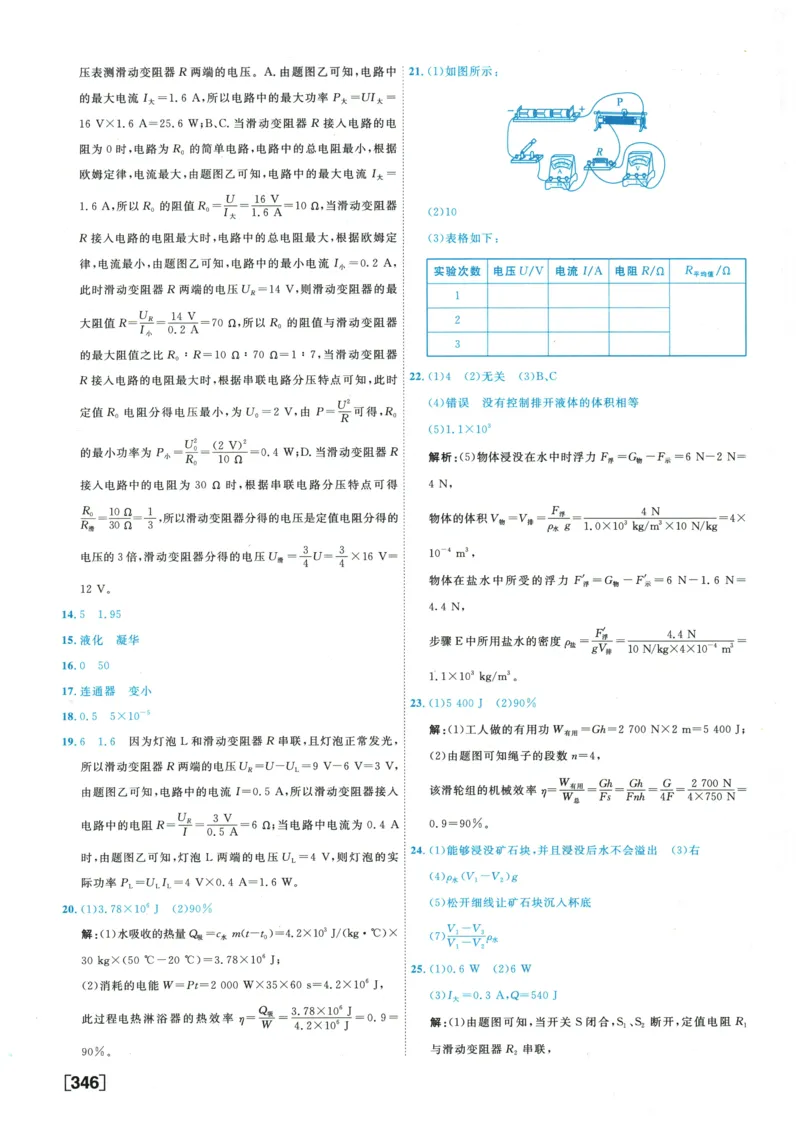 压表测滑动变阻器 R 两端的电压。A. 由题图乙可知,电路中
的最大电流 I大=1.6 A,所以电路中的最大功率 P大=UI大=
16 V×1.6 A=25.6 W;B、C. 当滑动变阻器 R 接入电路的电
阻为 0 时,电路为 R₀ 的简单电路,电路中的总电阻最小,根据
欧姆定律,电流最大,由题图乙可知,电路中的最大电流 I大=
1.6 A,所以 R₀ 的阻值 R₀=U/I大=16 V/1.6 A=10 Ω,当滑动变阻器
R 接入电路的电阻最大时,电路中的总电阻最大,根据欧姆定
律,电流最小,由题图乙可知,电路中的最小电流 I小=0.2 A,
此时滑动变阻器 R 两端的电压 U_R=14 V,则滑动变阻器的最
大阻值 R=U_R/I小=14 V/0.2 A=70 Ω,所以 R₀ 的阻值与滑动变阻器
的最大阻值之比 R₀∶R=10 Ω∶70 Ω=1∶7,当滑动变阻器
R 接入电路的电阻最大时,根据串联电路分压特点可知,此时
定值 R₀ 电阻分得电压最小,为 U₀=2 V,由 P=U²/R 可得,R₀
的最小功率为 P小=U₀²/R₀=(2 V)²/10 Ω=0.4 W;D. 当滑动变阻器 R
接入电路中的电阻为 30 Ω 时,根据串联电路分压特点可得
R₀/R滑=10 Ω/30 Ω=1/3,所以滑动变阻器分得的电压是定值电阻分得的
电压的 3 倍,滑动变阻器分得的电压 U滑=3/4U=3/4×16 V=
12 V。
14. 5 1.95
15. 液化 凝华
16. 0 50
17. 连通器 变小
18. 0.5 5×10⁻⁵
19. 6 1.6 因为灯泡 L 和滑动变阻器 R 串联,且灯泡正常发光,
所以滑动变阻器 R 两端的电压 U_R=U-U_L=9 V-6 V=3 V,
由题图乙可知,电路中的电流 I=0.5 A,所以滑动变阻器接入
电路中的电阻 R=U_R/I=3 V/0.5 A=6 Ω;当电路中电流为 0.4 A
时,由题图乙可知,灯泡 L 两端的电压 U_L=4 V,则灯泡的实
际功率 P_L=U_L I_L=4 V×0.4 A=1.6 W。
20. (1)3.78×10⁶ J (2)90%
解:(1)水吸收的热量 Q吸=c水 m(t-t₀)=4.2×10³ J/(kg·℃)×
30 kg×(50 ℃-20 ℃)=3.78×10⁶ J;
(2)消耗的电能 W=Pt=2 000 W×35×60 s=4.2×10⁶ J,
此过程电热淋浴器的热效率 η=Q吸/W=3.78×10⁶ J/4.2×10⁶ J=0.9=
90%。
[346]
21. (1)如图所示:
- + P
R
A V
(2)10
(3)表格如下:
实验次数 电压 U/V 电流 I/A 电阻 R/Ω R平均值/Ω
1
2
3
22. (1)4 (2)无关 (3)B、C
(4)错误 没有控制排开液体的体积相等
(5)1.1×10³
解析:(5)物体浸没在水中时浮力 F浮=G物-F示=6 N-2 N=
4 N,
物体的体积 V物=V排=F浮/ρ水 g=4 N/1.0×10³ kg/m³×10 N/kg=4×
10⁻⁴ m³,
物体在盐水中所受的浮力 F′浮=G物-F′示=6 N-1.6 N=
4.4 N,
步骤 E 中所用盐水的密度 ρ盐=F′浮/gV排=4.4 N/10 N/kg×4×10⁻⁴ m³=
1.1×10³ kg/m³。
23. (1)5 400 J (2)90%
解:(1)工人做的有用功 W有用=Gh=2 700 N×2 m=5 400 J;
(2)由题图可知绳子的段数 n=4,
该滑轮组的机械效率 η=W有用/W总=Gh/Fs=Gh/Fnh=G/4F=2 700 N/4×750 N=
0.9=90%。
24. (1)能够浸没矿石块,并且浸没后水不会溢出 (3)右
(4)ρ水(V₁-V₂)g
(5)松开细线让矿石块沉入杯底
(7)V₁-V₃/V₁-V₂ρ水
25. (1)0.6 W (2)6 W
(3)I大=0.3 A,Q=540 J
解:(1)由题图可知,当开关 S 闭合,S₁、S₂ 断开,定值电阻 R₁
与滑动变阻器 R₂ 串联,